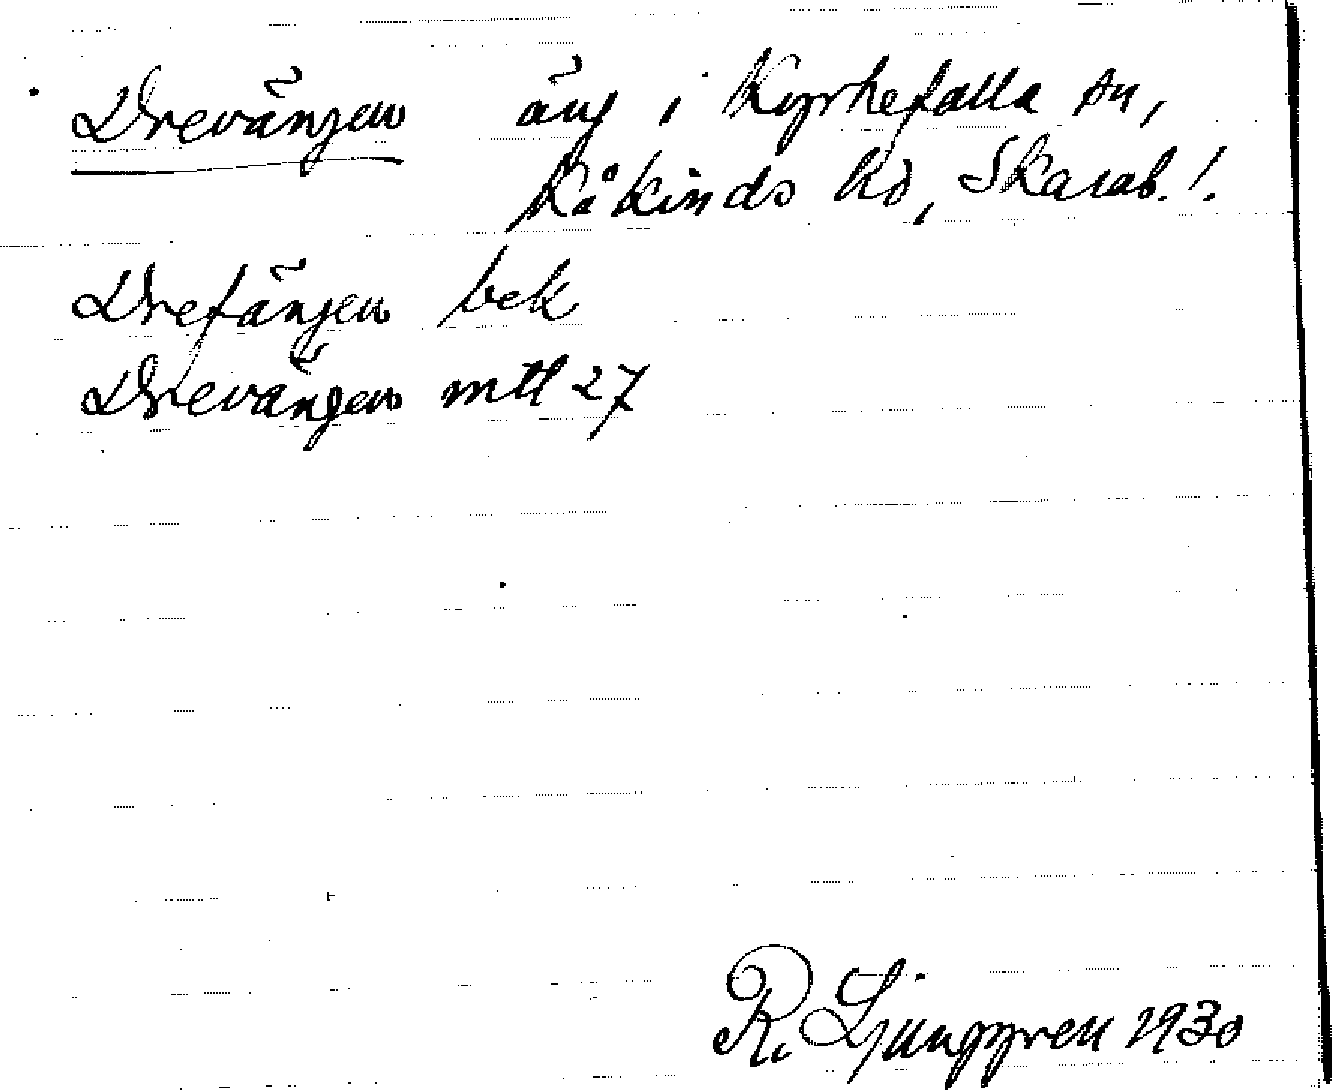 Drevängen äng i Kyrkefalla sn,
Kåkinds hd, Skarab. l.
Drefängen bek
Drevängen mtl 27
R. Ljunggren 1930